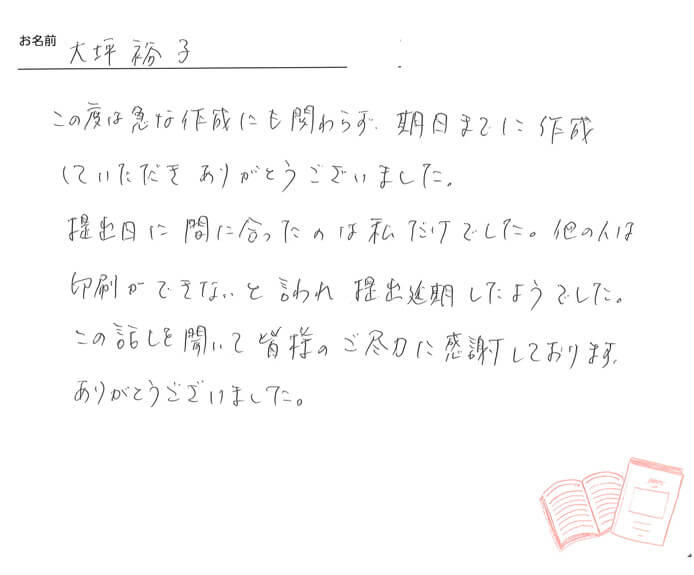 お名前 大坪 裕子
この度は急な作成にも関わらず、期日までに作成
していただきありがとうございました。
提出日に間に合ったのは私だけでした。他の人は
印刷ができないと言われ提出延期したようでした。
この話しを聞いて皆様のご尽力に感謝しております。
ありがとうございました。